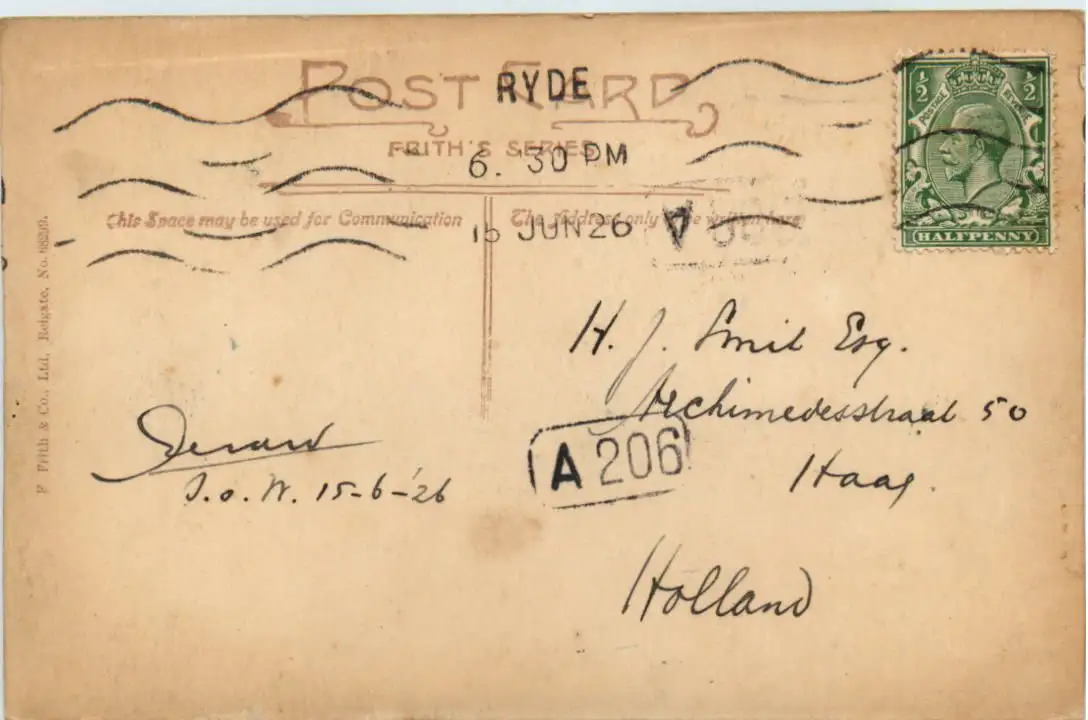 POST CARD
FRITH'S SERIES
RYDE
6. 30 PM
15 JUN 26
½ ½
POSTAGE REVENUE
HALFPENNY
This Space may be used for Communication
The Address only to be written here
F. Frith & Co., Ltd., Reigate, No.
H. J. Smit Esq.
Archimedesstraat 50
Haag.
Holland
A 206
I.o.W. 15-6-'26